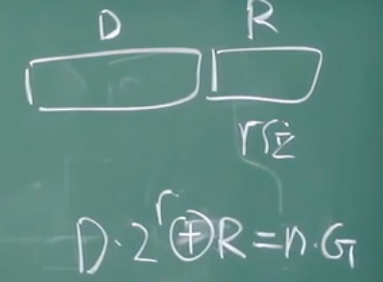 D R
r位
D·2^r⊕R=n·G